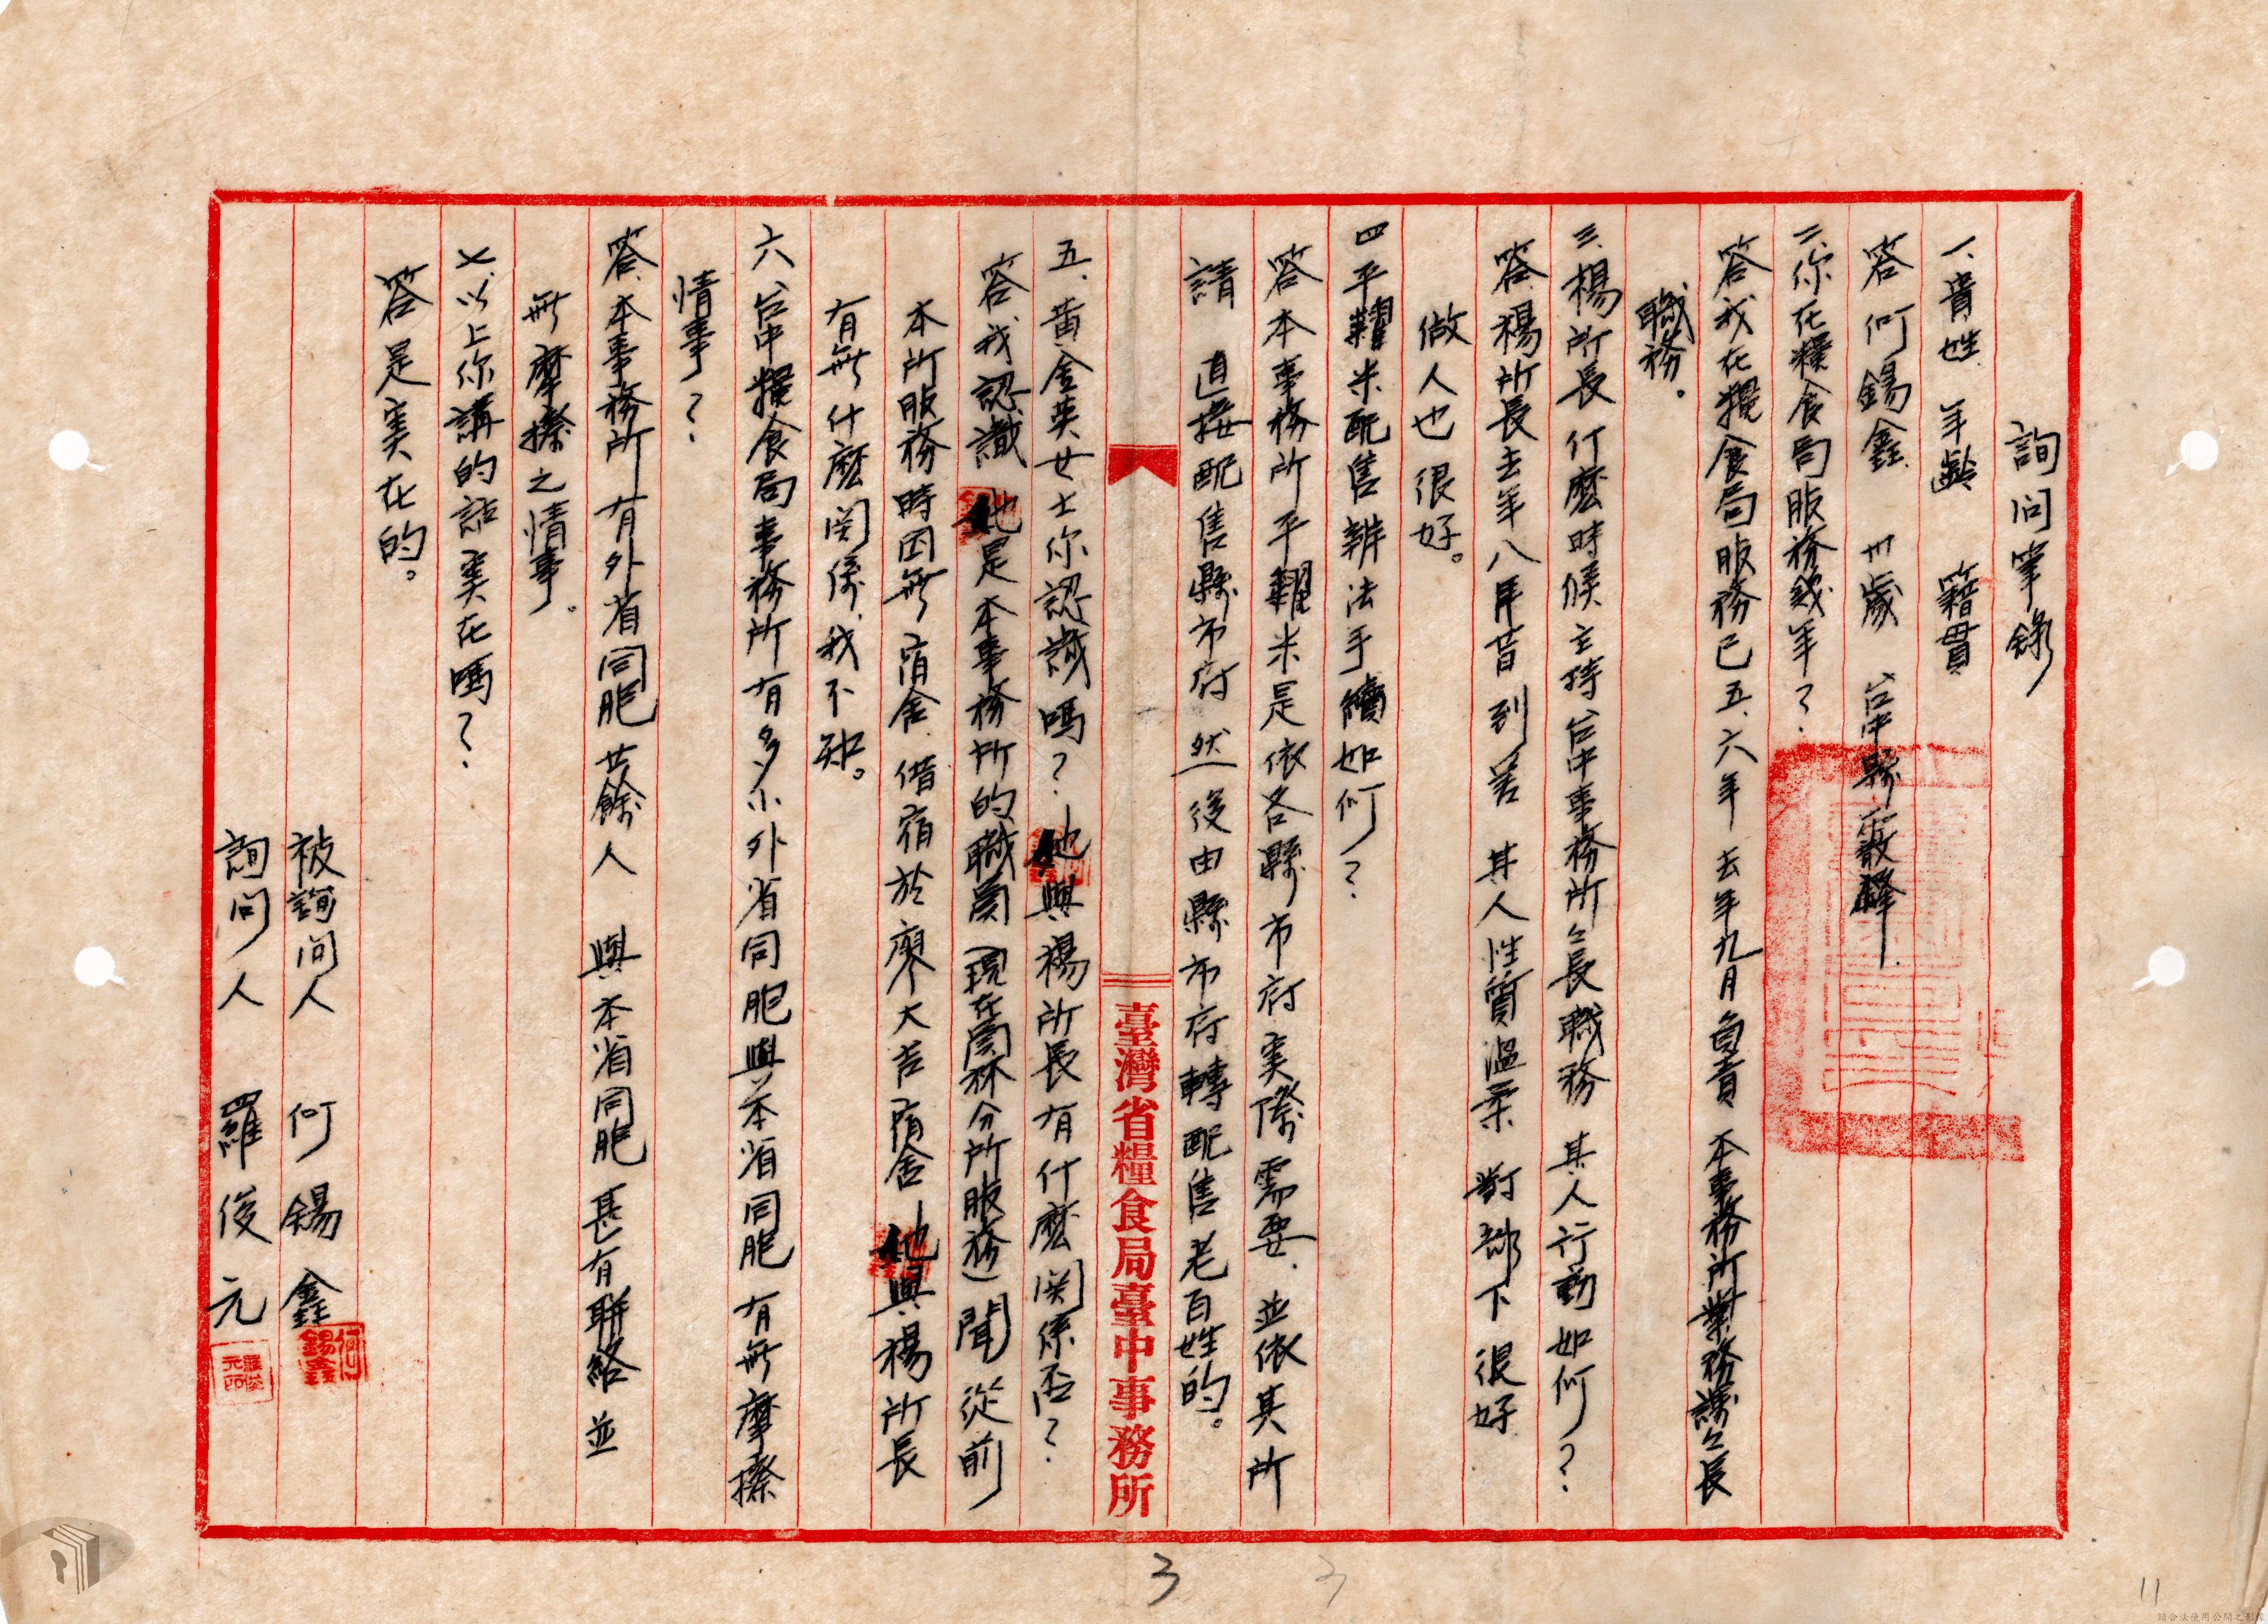 詢問筆錄
一、貴姓 年齡 籍貫
答 何錫鑫 卅歲 台中縣霧峰
二、你在糧食局服務幾年？
答 我在糧食局服務已五、六年 去年九月負責 本事務所業務課々長
職務。
三、楊所長 什麼時候主持台中事務所々長職務 其人行動如何？
答 楊所長去年八月 到差 其人性質溫柔 對部下很好
做人也很好。
四 平糶米配售辦法手續如何？
答 本事務所平糶米是依各縣市府实際需要、並依其所
請 直接配售縣市府 然後由縣市府轉配售老百姓的。
臺灣省糧食局臺中事務所
五、黃金英女士你認識嗎？他與楊所長有什麼関係否？
答、我認識 他是本事務所的職員（現在員林分所服務）聞從前
本所服務時因無宿舍、借宿於廖大吉宿舍 他與楊所長
有無什麼関係、我不知。
六、台中糧食局事務所有多少外省同胞與本省同胞 有無摩擦
情事？
答、本事務所 有外省同胞廿餘人 與本省同胞甚有聯絡 並
無摩擦之情事。
七、以上你講的話实在嗎？
答 是实在的。
被詢問人 何錫鑫
何錫鑫
詢問人 羅俊元
羅俊元印
3
3
11